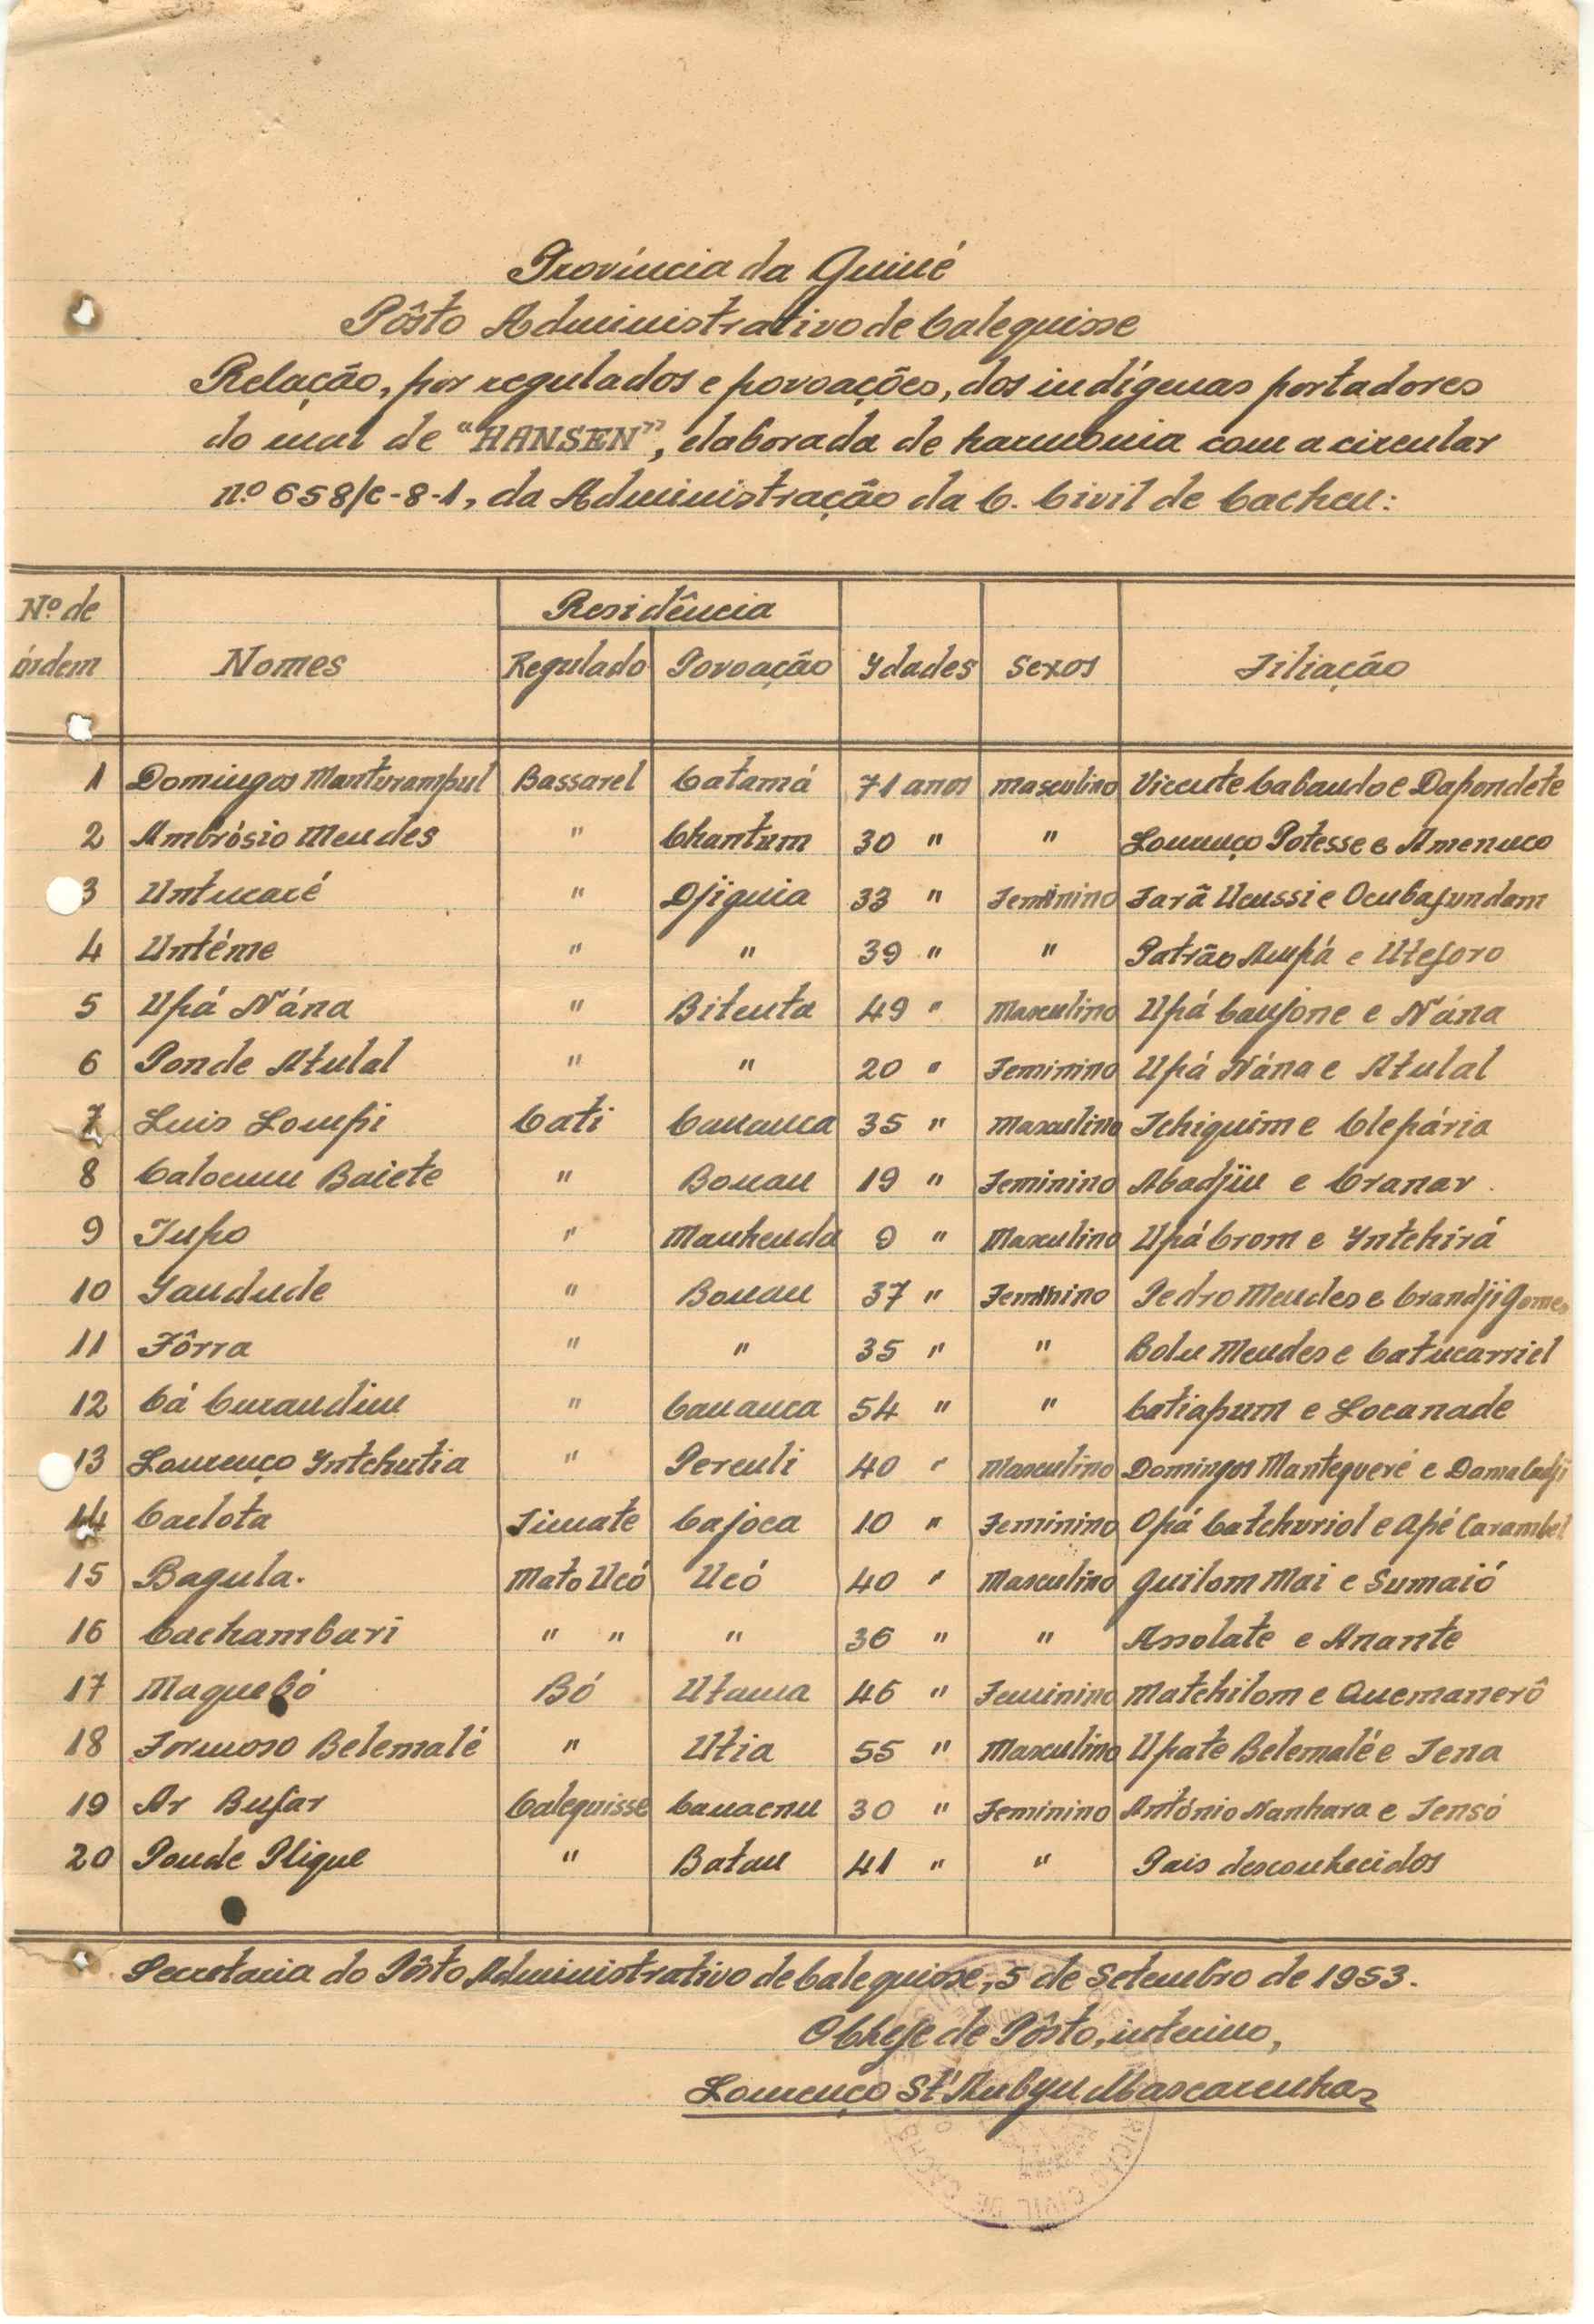 Província da Guiné
Pôsto Administrativo de Calequisse
Relação, por regulados e povoações, dos indígenas portadores
do mal de "HANSEN", elaborada de harmonia com a circular
nº 658/C-8-1, da Administração da C. Civil de Cacheu:
Residência
Nº de órdem Nomes Regulado Povoação Ydades Sexos Filiação
1 Domingos Manturampul Bassarel Catamá 71 anos masculino Vicente Cabando e Dapondete
2 Ambrósio Mendes " Chantum 30 " " Lourenço Potesse e Amenuco
3 Untucaré " Djiguia 33 " Feminino Farã Ucussi e Ocubafundam
4 Untéme " " 39 " " Patrão Aupá e Uteforo
5 Upá Nána " Bitenta 49 " Masculino Upá Canfone e Nána
6 Ponde Atulal " " 20 " Feminino Upá Nána e Atulal
7 Luis Lompi Cati Cananca 35 " Masculino Tchiguim e Clepária
8 Calocunu Baiete " Bonau 19 " Feminino Abadjiu e Cranar.
9 Tupo " Manhenda 9 " Masculino Upá Crom e Yntchirá
10 Yandude " Bonau 37 " Feminino Pedro Mendes e Crandji Gomes
11 Fôrra " " 35 " " Bolu Mendes e Catucarriel
12 Cá Curandiu " Cananca 54 " " Catiapum e Locanade
13 Lourenço Yntchutia " Perculi 40 " Masculino Domingos Mantequeré e Damaladji
14 Carlota Timate Cajoca 10 " Feminino Opá Catchuriol e Apé Carambel
15 Bagula. Mato Ucó Ucó 40 " Masculino Guilom Mai e Sumaió
16 Cachambari " " " 36 " " Assolate e Anante
17 Maquebó Bó Utama 46 " Feminino Matchilom e Quemanerô
18 Formoso Belemalé " Utia 55 " Masculino Upate Belemalé e Tena
19 Ar Bufar Calequisse Canacnu 30 " Feminino António Nanhara e Tensó
20 Ponde Plique " Batau 41 " " Pais desconhecidos
Secretaria do Pôsto Administrativo de Calequisse, 5 de Setembro de 1953.
O Chefe de Pôsto, interino,
Lourenço St'Aubyn Mascarenhas